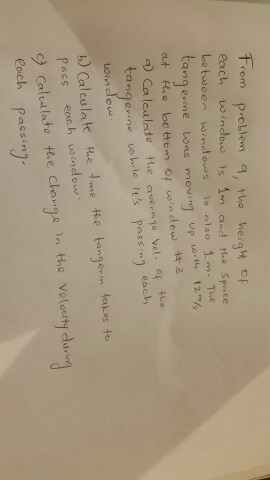 From problem 9, the height of
each window is 1m and the space
between windows is also 1m. The
tangerine was moving up with 12 m/s
at the bottom of window #3
a) Calculate the average vel. of the
tangerine while it's passing each
window.
b) Calculate the time the tangerin takes to
pass each window.
c) Calculate the change in the velocity during
each passing.